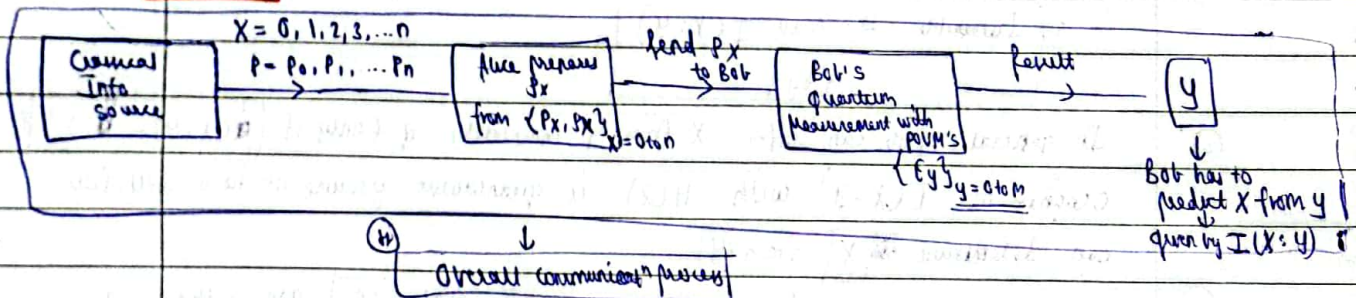 X = 0, 1, 2, 3, ...n
P = P0, P1, ... Pn
Classical
Info
Source
Alice prepares
ρx
from {Px, ρx}x=0 to n
Send ρx
to Bob
Bob's
quantum
measurement with
POVM's
{Ey}y=0 to m
Result
y
↓
Bob has to
predict X from y
↓
given by I(X:Y)
(H)
↓
Overall communicatⁿ process